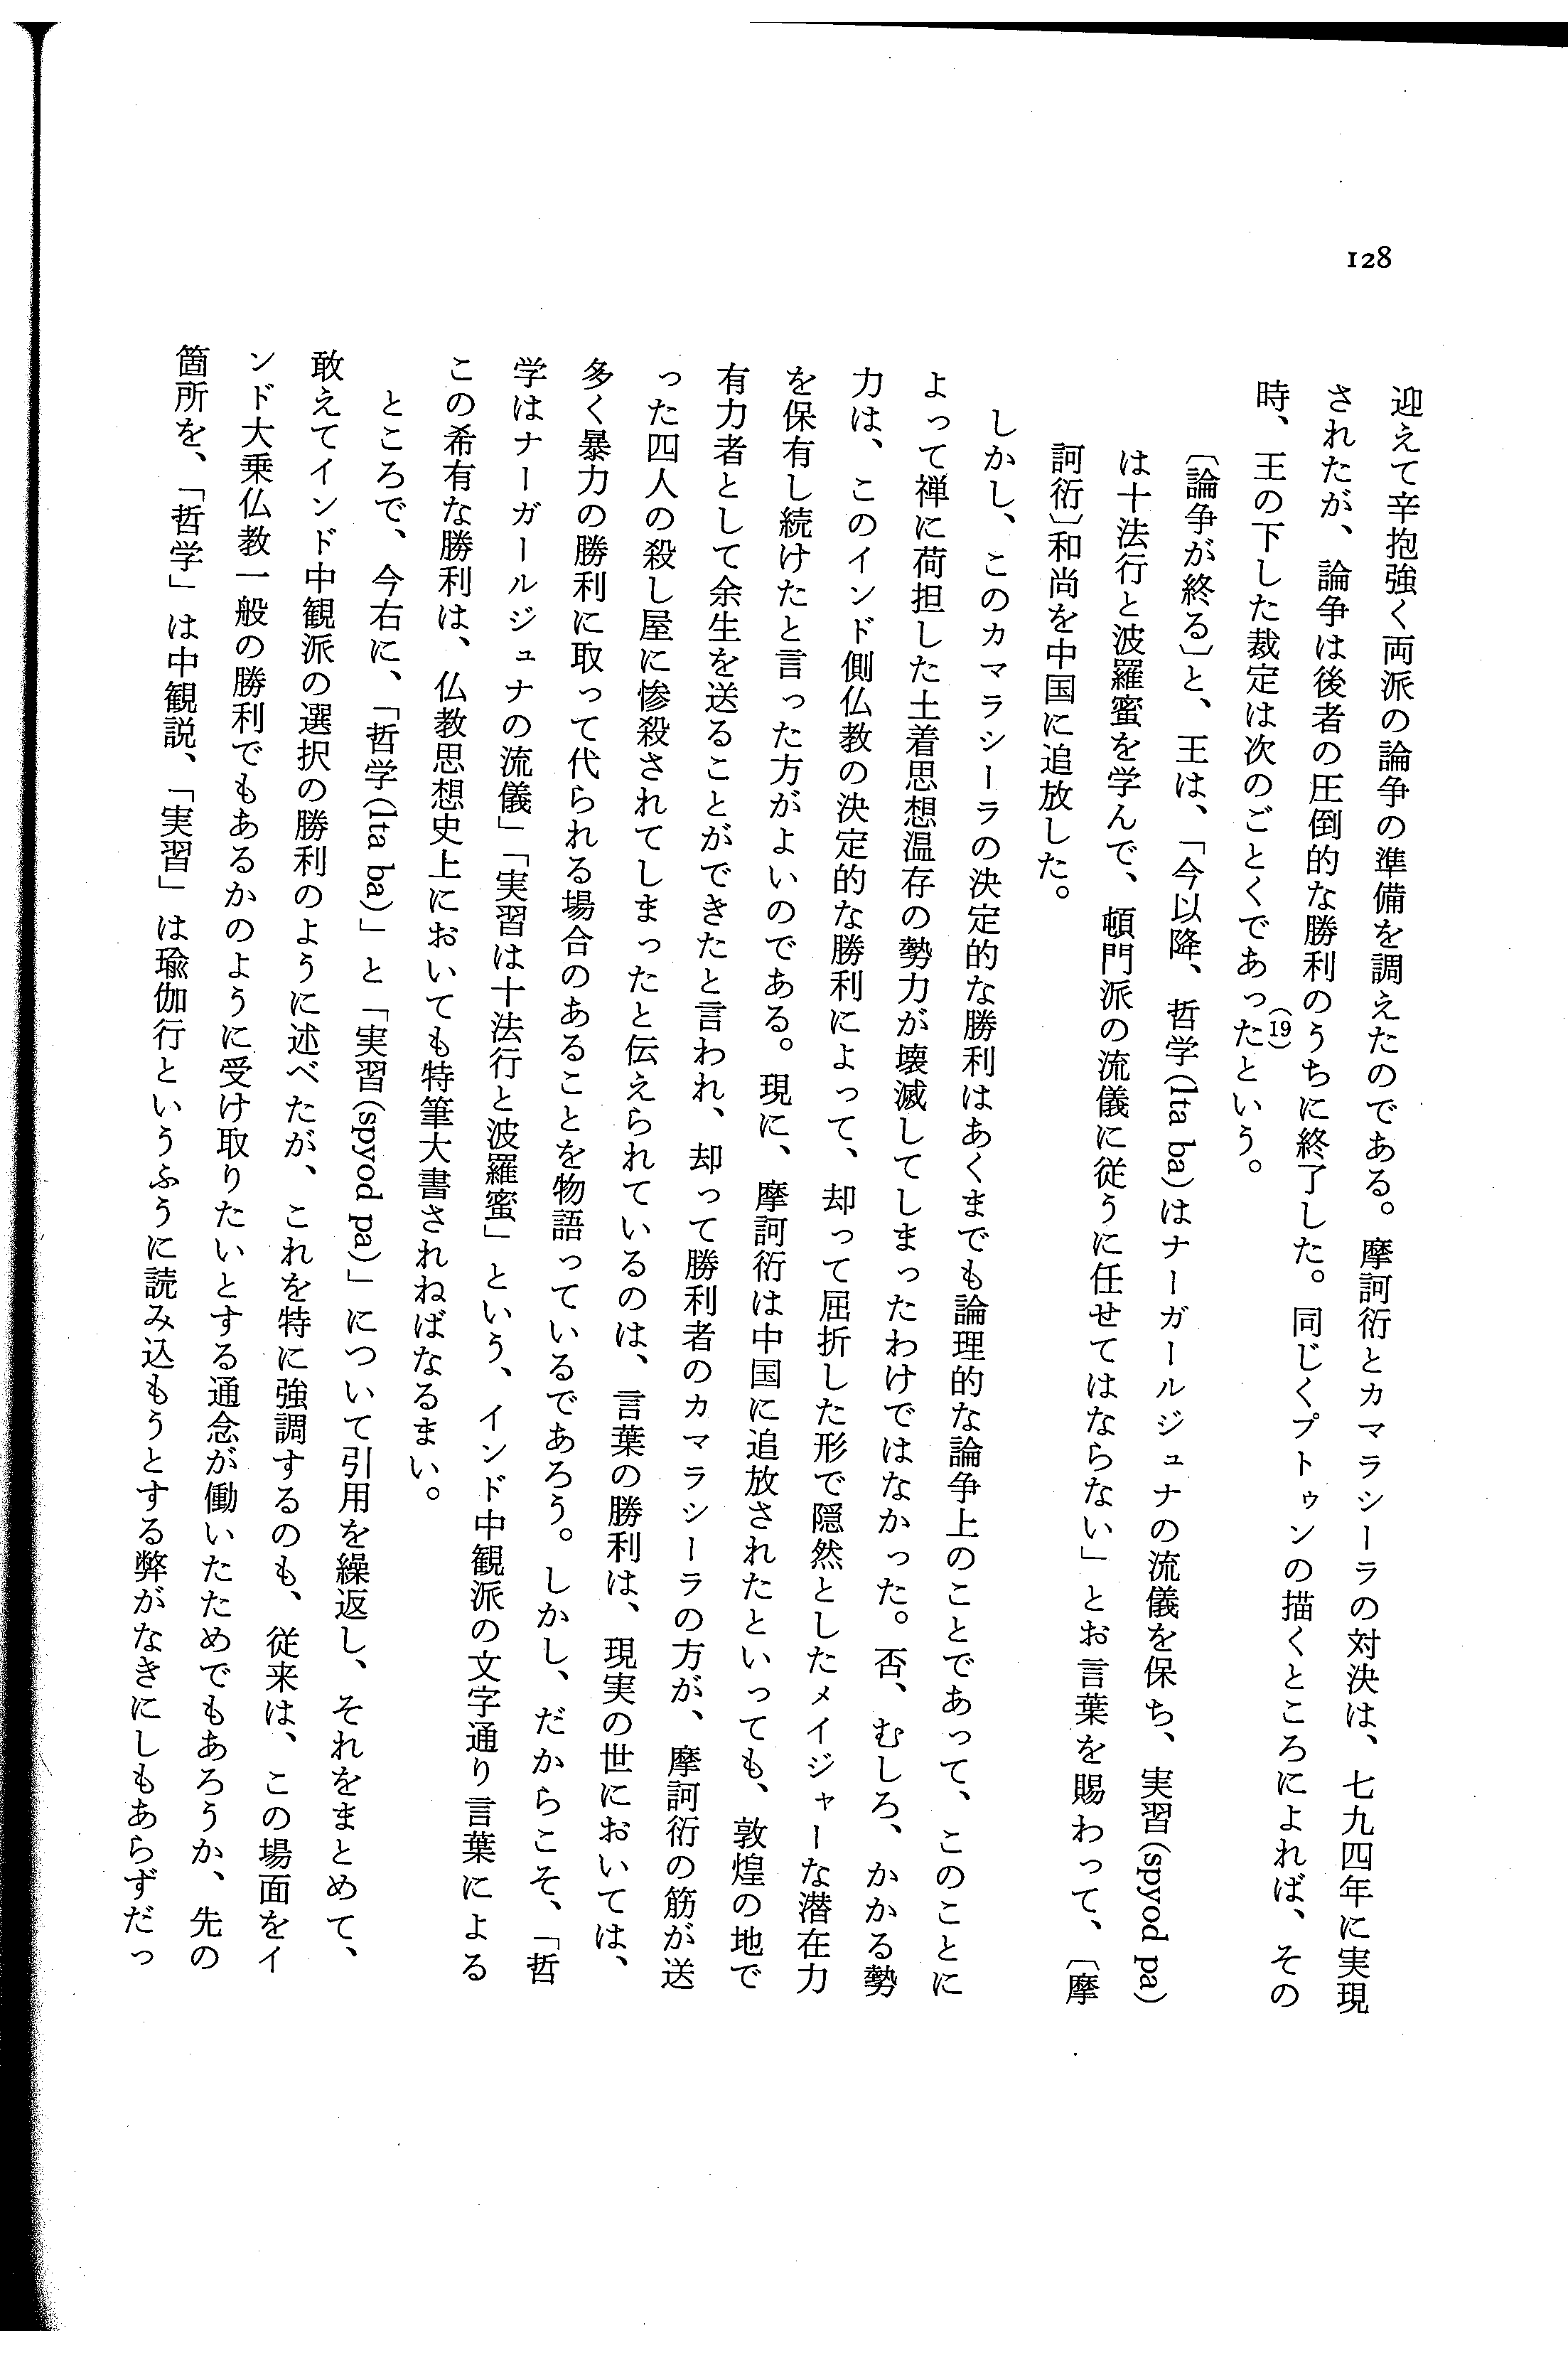 128
迎えて辛抱強く両派の論争の準備を調えたのである。摩訶衍とカマラシーラの対決は、七九四年に実現
されたが、論争は後者の圧倒的な勝利のうちに終了した。同じくプトゥンの描くところによれば、その
時、王の下した裁定は次のごとくであったという。(19)
〔論争が終る〕と、王は、「今以降、哲学(lta ba)はナーガールジュナの流儀を保ち、実習(spyod pa)
は十法行と波羅蜜を学んで、頓門派の流儀に従うに任せてはならない」とお言葉を賜わって、〔摩
訶衍〕和尚を中国に追放した。
しかし、このカマラシーラの決定的な勝利はあくまでも論理的な論争上のことであって、このことに
よって禅に荷担した土着思想温存の勢力が壊滅してしまったわけではなかった。否、むしろ、かかる勢
力は、このインド側仏教の決定的な勝利によって、却って屈折した形で隠然としたメイジャーな潜在力
を保有し続けたと言った方がよいのである。現に、摩訶衍は中国に追放されたといっても、敦煌の地で
有力者として余生を送ることができたと言われ、却って勝利者のカマラシーラの方が、摩訶衍の筋が送
った四人の殺し屋に惨殺されてしまったと伝えられているのは、言葉の勝利は、現実の世においては、
多く暴力の勝利に取って代られる場合のあることを物語っているであろう。しかし、だからこそ、「哲
学はナーガールジュナの流儀」「実習は十法行と波羅蜜」という、インド中観派の文字通り言葉による
この希有な勝利は、仏教思想史上においても特筆大書されねばなるまい。
ところで、今右に、「哲学(lta ba)」と「実習(spyod pa)」について引用を繰返し、それをまとめて、
敢えてインド中観派の選択の勝利のように述べたが、これを特に強調するのも、従来は、この場面をイ
ンド大乗仏教一般の勝利でもあるかのように受け取りたいとする通念が働いたためでもあろうか、先の
箇所を、「哲学」は中観説、「実習」は瑜伽行というふうに読み込もうとする弊がなきにしもあらずだっ